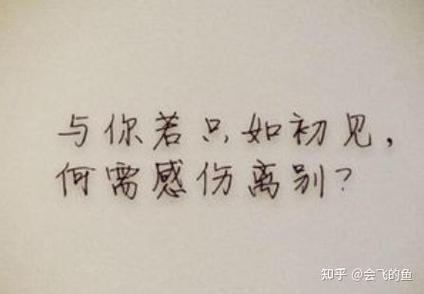 与你若只如初见，
何需感伤离别？
知乎 @会飞的鱼